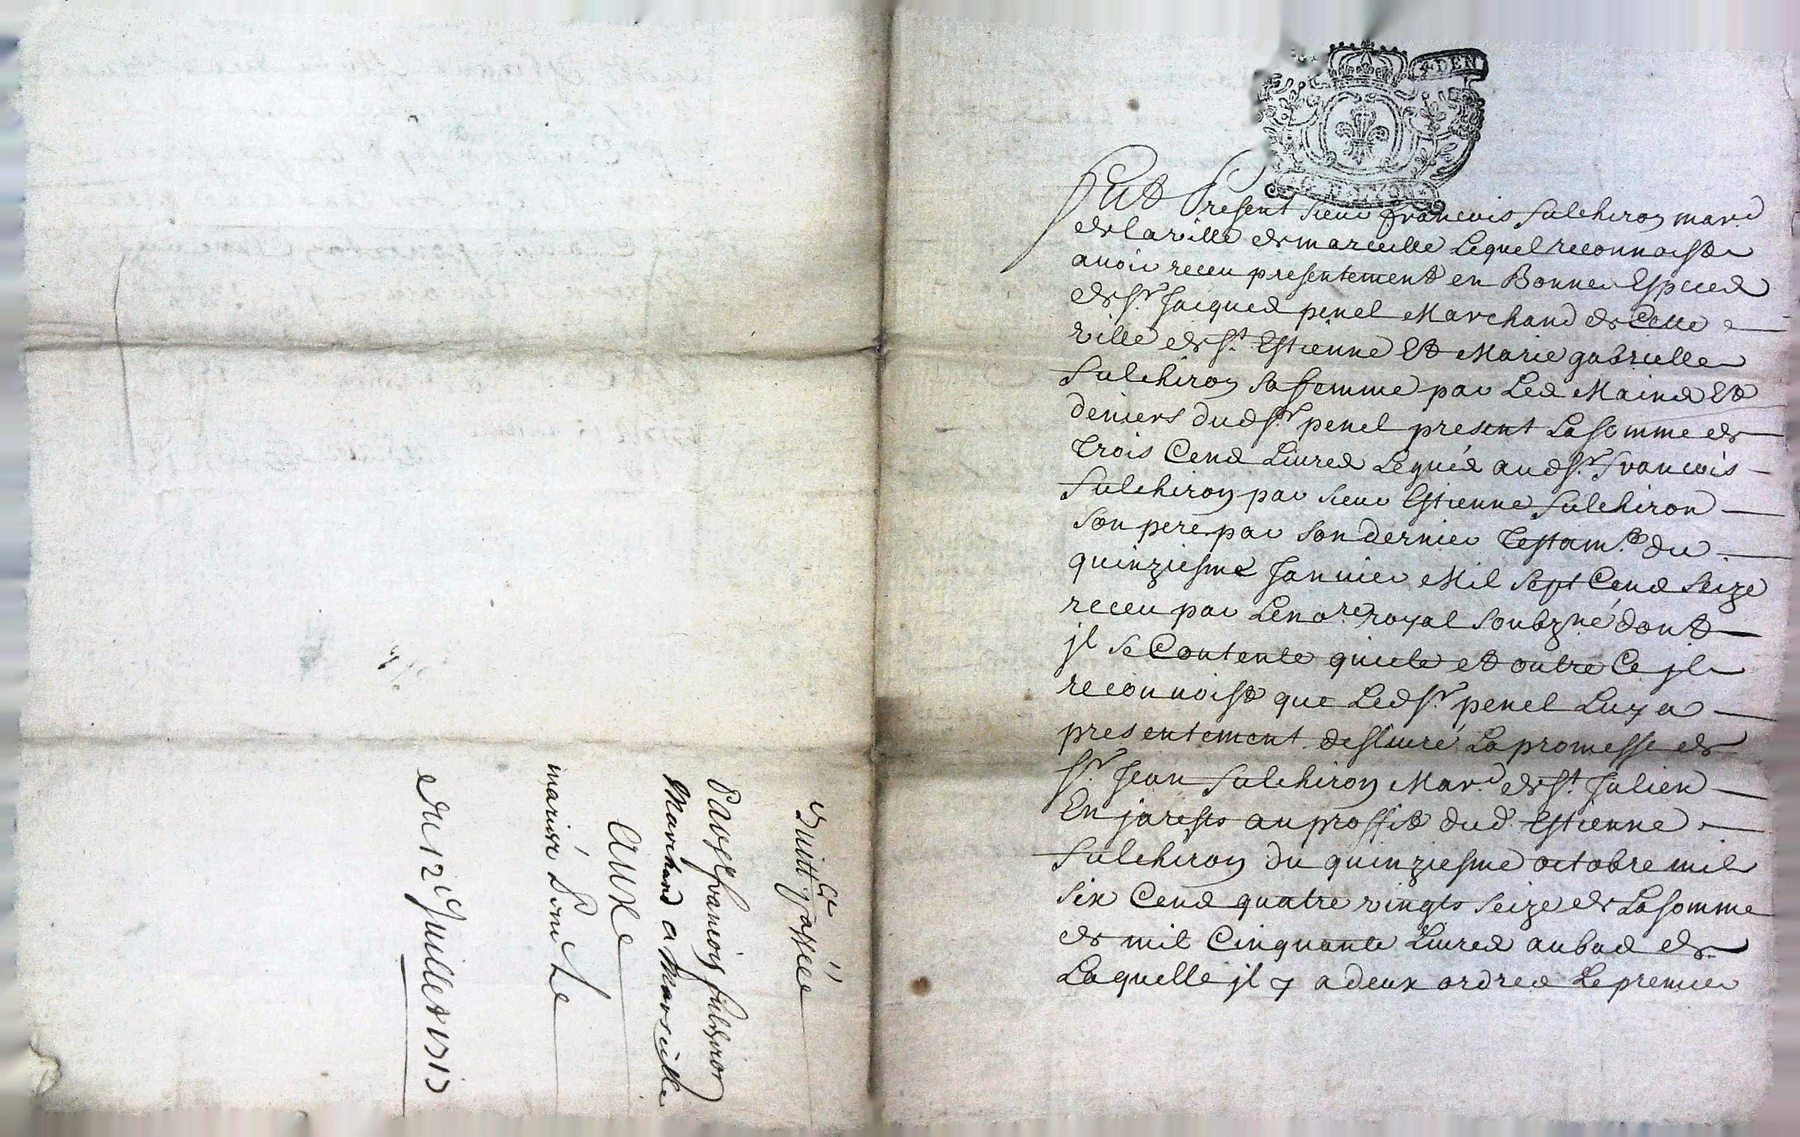 Fut Present sieur françois fulchiron mard
de la ville de marceille Lequel reconnoist
avoir receu presentement en Bonnes Especes
de sr. Jacques penel Marchand de Cette
ville de st. Estienne Et Marie gabrielle
fulchiron sa femme par Les Mains Et
deniers dud sr. penel present La somme de
Trois Cens Livres Legués aud sr. françois
fulchiron par sieur Estienne fulchiron
son pere par son dernier Testamt. du
quinziesme Janvier Mil Sept Cens Seize
receu par Le nore. royal soubzné dont
jl se Contente quicte et outre Ce jl
reconnoist que Led sr. penel Luy a
presentement deslivré La promesse de
sr. Jean fulchiron Mard. de st. Julien
En jarests au proffit dud. Estienne
fulchiron du quinziesme octobre mil
six Cens quatre vingts seize de La somme
de mil Cinquante Livres au bas de
Laquelle jl y a deux ordres Le premier
Quittce passée
Par sr françois fulchiron
Marchand a Marseille
aux
mariés
du 12 Juillet 1717